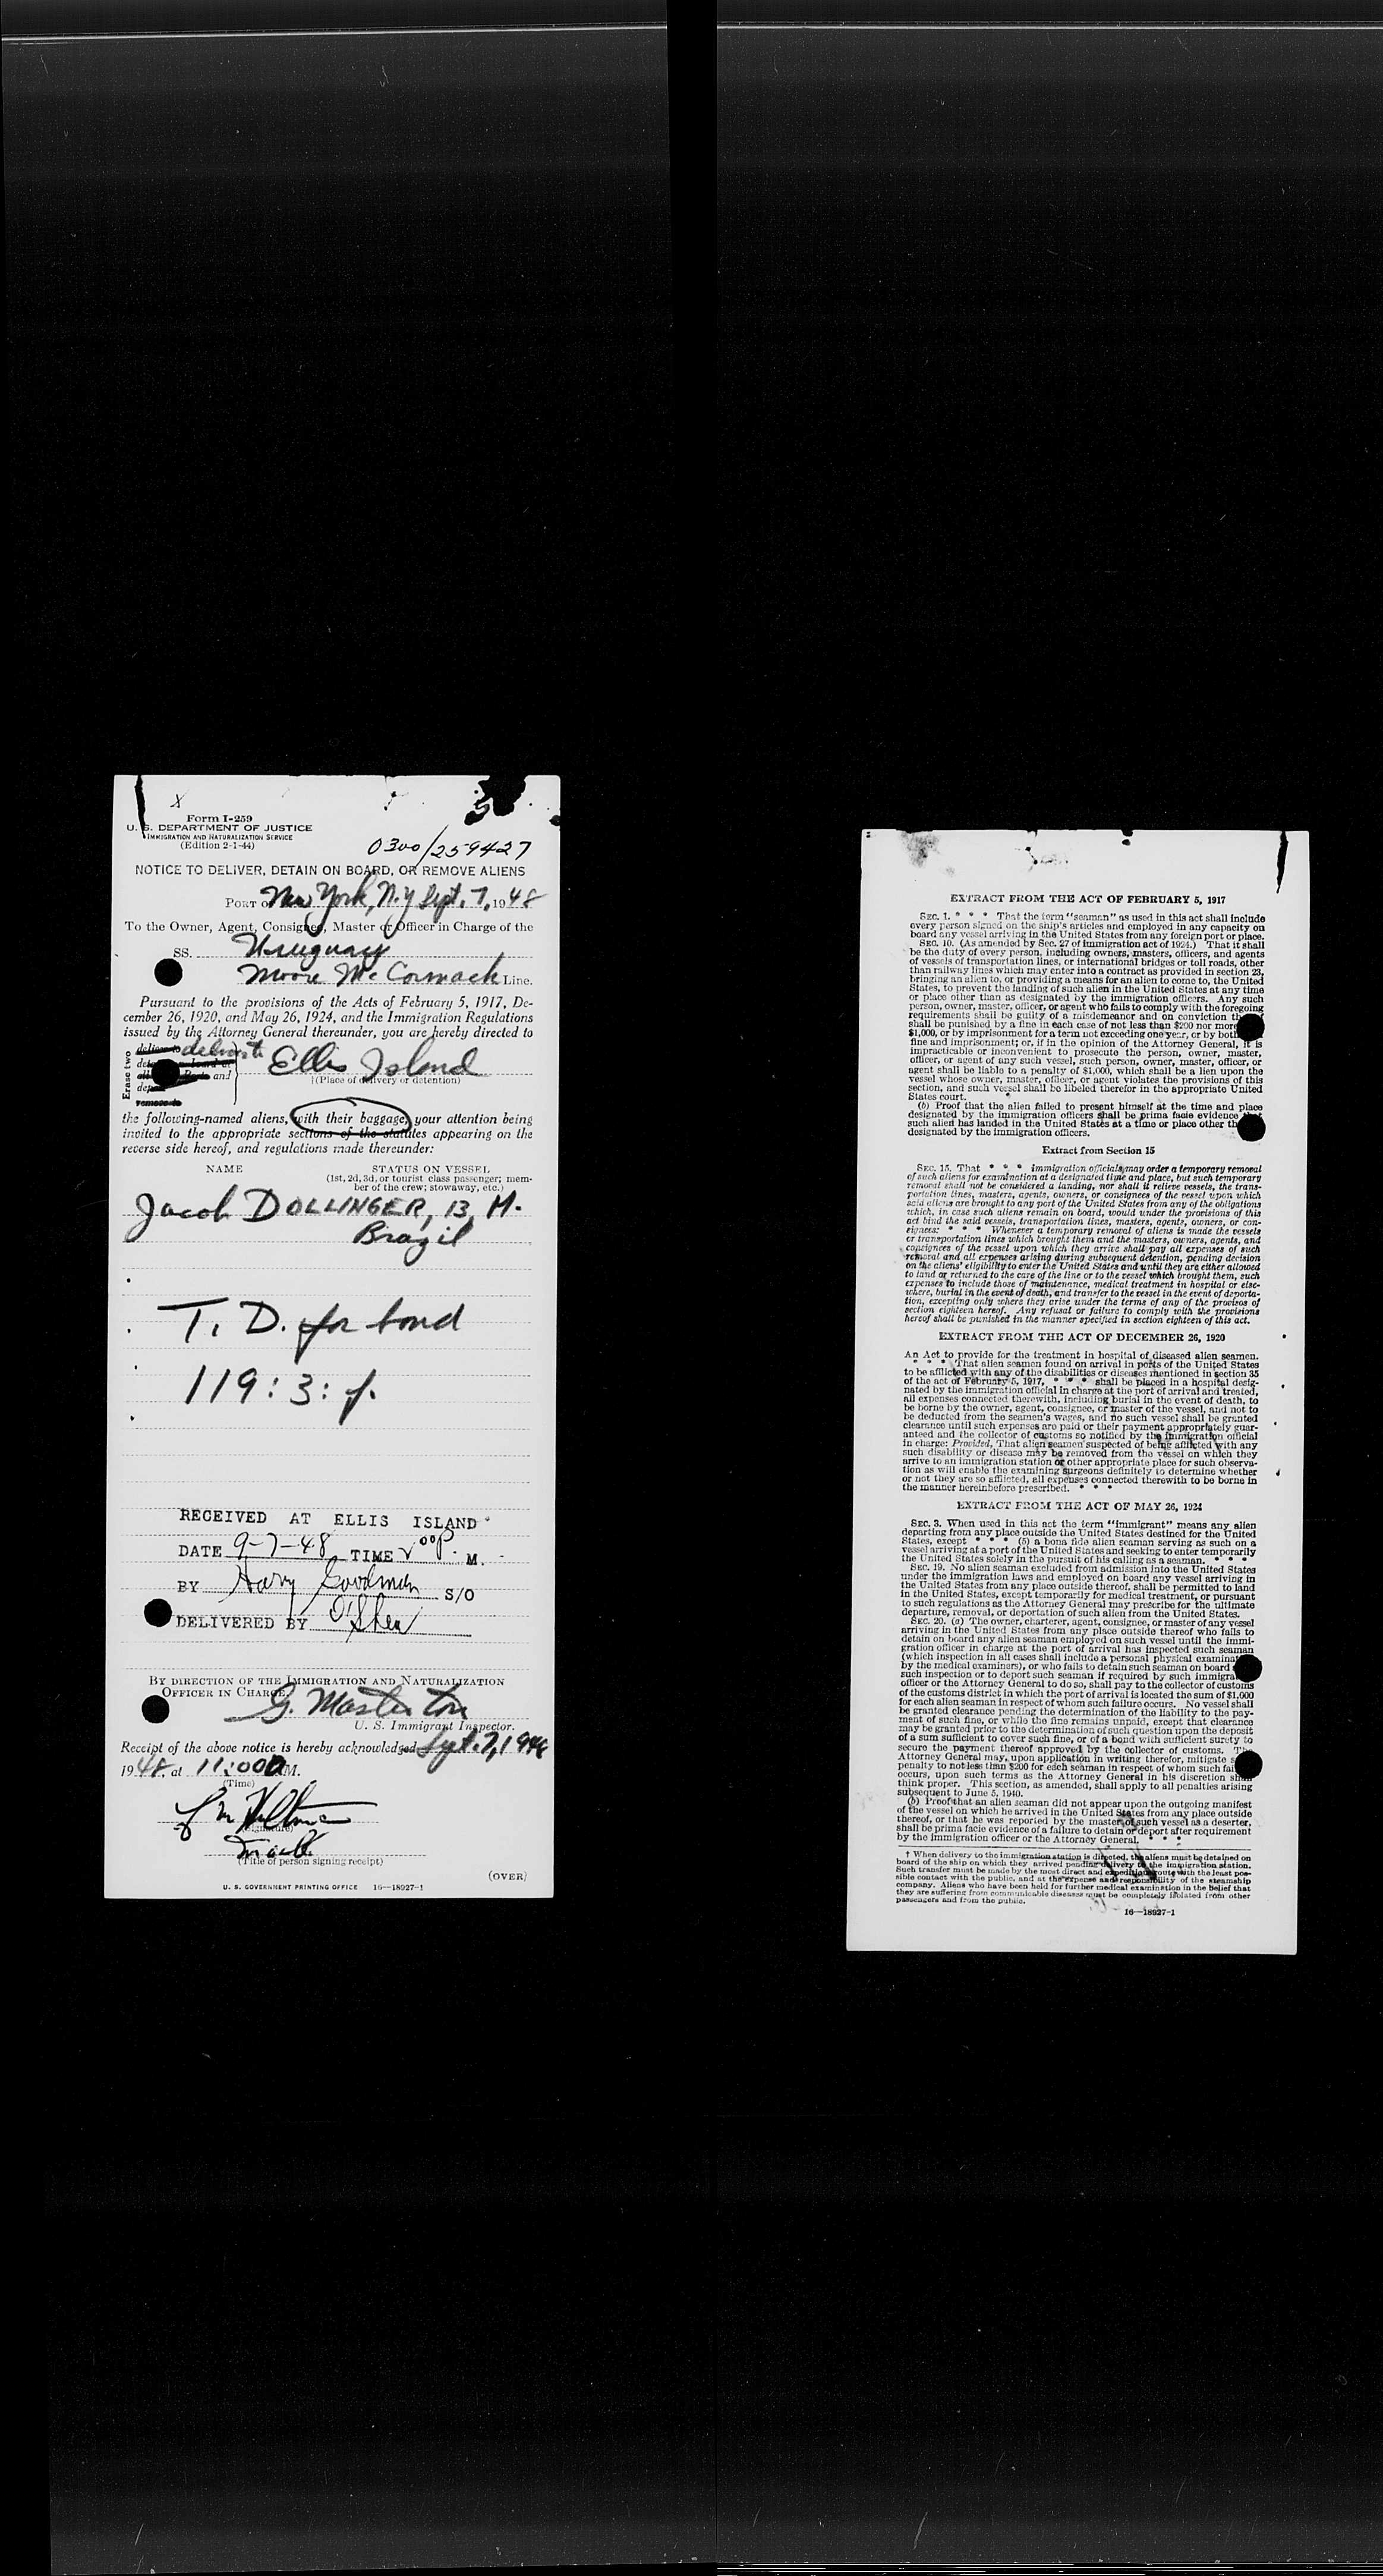 X
Form I-259
U. S. DEPARTMENT OF JUSTICE
IMMIGRATION AND NATURALIZATION SERVICE
(Edition 2-1-44)
0300/259427
NOTICE TO DELIVER, DETAIN ON BOARD, OR REMOVE ALIENS
PORT OF New York, N.Y. Sept. 7, 1948
To the Owner, Agent, Consignee, Master or Officer in Charge of the
SS. Uruguay
Moore McCormack Line.
Pursuant to the provisions of the Acts of February 5, 1917, De-
cember 26, 1920, and May 26, 1924, and the Immigration Regulations
issued by the Attorney General thereunder, you are hereby directed to
Erase two
deliver to
and
remove to
Ellis Island
†(Place of delivery or detention)
the following-named aliens, with their baggage, your attention being
invited to the appropriate sections of the statutes appearing on the
reverse side hereof, and regulations made thereunder:
NAME STATUS ON VESSEL
(1st, 2d, 3d, or tourist class passenger; mem-
ber of the crew; stowaway, etc.)
Jacob DOLLINGER, 13, M.
Brazil
T. D. for bond
119:3:f.
RECEIVED AT ELLIS ISLAND
DATE 9-7-48 TIME 2 00 P. M.
BY Harry Goodman S/O
DELIVERED BY O'Shea
BY DIRECTION OF THE IMMIGRATION AND NATURALIZATION
OFFICER IN CHARGE,
G. Masterton
U. S. Immigrant Inspector.
Receipt of the above notice is hereby acknowledged Sept. 7, 1948
1948, at 11:00 A M.
(Time)
(Signature)
(Title of person signing receipt)
(OVER)
U. S. GOVERNMENT PRINTING OFFICE 16—18927-1
EXTRACT FROM THE ACT OF FEBRUARY 5, 1917
SEC. 1. * * * That the term "seaman" as used in this act shall include
every person signed on the ship's articles and employed in any capacity on
board any vessel arriving in the United States from any foreign port or place.
SEC. 10. (As amended by Sec. 27 of immigration act of 1924.) That it shall
be the duty of every person, including owners, masters, officers, and agents
of vessels of transportation lines, or international bridges or toll roads, other
than railway lines which may enter into a contract as provided in section 23,
bringing an alien to, or providing a means for an alien to come to, the United
States, to prevent the landing of such alien in the United States at any time
or place other than as designated by the immigration officers. Any such
person, owner, master, officer, or agent who fails to comply with the foregoing
requirements shall be guilty of a misdemeanor and on conviction
shall be punished by a fine in each case of not less than $200 nor more
$1,000, or by imprisonment for a term not exceeding one year, or by both
fine and imprisonment; or, if in the opinion of the Attorney General, it is
impracticable or inconvenient to prosecute the person, owner, master,
officer, or agent of any such vessel, such person, owner, master, officer, or
agent shall be liable to a penalty of $1,000, which shall be a lien upon the
vessel whose owner, master, officer, or agent violates the provisions of this
section, and such vessel shall be libeled therefor in the appropriate United
States court.
(b) Proof that the alien failed to present himself at the time and place
designated by the immigration officers shall be prima facie evidence
such alien has landed in the United States at a time or place other
designated by the immigration officers.
Extract from Section 15
SEC. 15. That * * * immigration officials may order a temporary removal
of such aliens for examination at a designated time and place, but such temporary
removal shall not be considered a landing, nor shall it relieve vessels, the trans-
portation lines, masters, agents, owners, or consignees of the vessel upon which
said aliens are brought to any port of the United States from any of the obligations
which, in case such aliens remain on board, would under the provisions of this
act bind the said vessels, transportation lines, masters, agents, owners, or con-
signees: * * * Whenever a temporary removal of aliens is made the vessels
or transportation lines which brought them and the masters, owners, agents, and
consignees of the vessel upon which they arrive shall pay all expenses of such
removal and all expenses arising during subsequent detention, pending decision
on the aliens' eligibility to enter the United States and until they are either allowed
to land or returned to the care of the line or to the vessel which brought them, such
expenses to include those of maintenance, medical treatment in hospital or else-
where, burial in the event of death, and transfer to the vessel in the event of deporta-
tion, excepting only where they arise under the terms of any of the provisos of
section eighteen hereof. Any refusal or failure to comply with the provisions
hereof shall be punished in the manner specified in section eighteen of this act.
EXTRACT FROM THE ACT OF DECEMBER 26, 1920
An Act to provide for the treatment in hospital of diseased alien seamen.
* * * That alien seamen found on arrival in ports of the United States
to be afflicted with any of the disabilities or diseases mentioned in section 35
of the act of February 5, 1917, * * * shall be placed in a hospital desig-
nated by the immigration official in charge at the port of arrival and treated,
all expenses connected therewith, including burial in the event of death, to
be borne by the owner, agent, consignee, or master of the vessel, and not to
be deducted from the seamen's wages, and no such vessel shall be granted
clearance until such expenses are paid or their payment appropriately guar-
anteed and the collector of customs so notified by the immigration official
in charge: Provided, That alien seamen suspected of being afflicted with any
such disability or disease may be removed from the vessel on which they
arrive to an immigration station or other appropriate place for such observa-
tion as will enable the examining surgeons definitely to determine whether
or not they are so afflicted, all expenses connected therewith to be borne in
the manner hereinbefore prescribed. * * *
EXTRACT FROM THE ACT OF MAY 26, 1924
SEC. 3. When used in this act the term "immigrant" means any alien
departing from any place outside the United States destined for the United
States, except * * * (5) a bona fide alien seaman serving as such on a
vessel arriving at a port of the United States and seeking to enter temporarily
the United States solely in the pursuit of his calling as a seaman. * * *
SEC. 19. No alien seaman excluded from admission into the United States
under the immigration laws and employed on board any vessel arriving in
the United States from any place outside thereof, shall be permitted to land
in the United States, except temporarily for medical treatment, or pursuant
to such regulations as the Attorney General may prescribe for the ultimate
departure, removal, or deportation of such alien from the United States.
SEC. 20. (a) The owner, charterer, agent, consignee, or master of any vessel
arriving in the United States from any place outside thereof who fails to
detain on board any alien seaman employed on such vessel until the immi-
gration officer in charge at the port of arrival has inspected such seaman
(which inspection in all cases shall include a personal physical examination
by the medical examiners), or who fails to detain such seaman on board
such inspection or to deport such seaman if required by such immigration
officer or the Attorney General to do so, shall pay to the collector of customs
of the customs district in which the port of arrival is located the sum of $1,000
for each alien seaman in respect of whom such failure occurs. No vessel shall
be granted clearance pending the determination of the liability to the pay-
ment of such fine, or while the fine remains unpaid, except that clearance
may be granted prior to the determination of such question upon the deposit
of a sum sufficient to cover such fine, or of a bond with sufficient surety to
secure the payment thereof approved by the collector of customs. The
Attorney General may, upon application in writing therefor, mitigate
penalty to not less than $200 for each seaman in respect of whom such failure
occurs, upon such terms as the Attorney General in his discretion shall
think proper. This section, as amended, shall apply to all penalties arising
subsequent to June 5, 1940.
(b) Proof that an alien seaman did not appear upon the outgoing manifest
of the vessel on which he arrived in the United States from any place outside
thereof, or that he was reported by the master of such vessel as a deserter,
shall be prima facie evidence of a failure to detain or deport after requirement
by the immigration officer or the Attorney General. * * *
† When delivery to the immigration station is directed, the aliens must be detained on
board of the ship on which they arrived pending delivery to the immigration station.
Such transfer must be made by the most direct and expeditious route with the least pos-
sible contact with the public, and at the expense and responsibility of the steamship
company. Aliens who have been held for further medical examination in the belief that
they are suffering from communicable diseases must be completely isolated from other
passengers and from the public.
16—18927-1